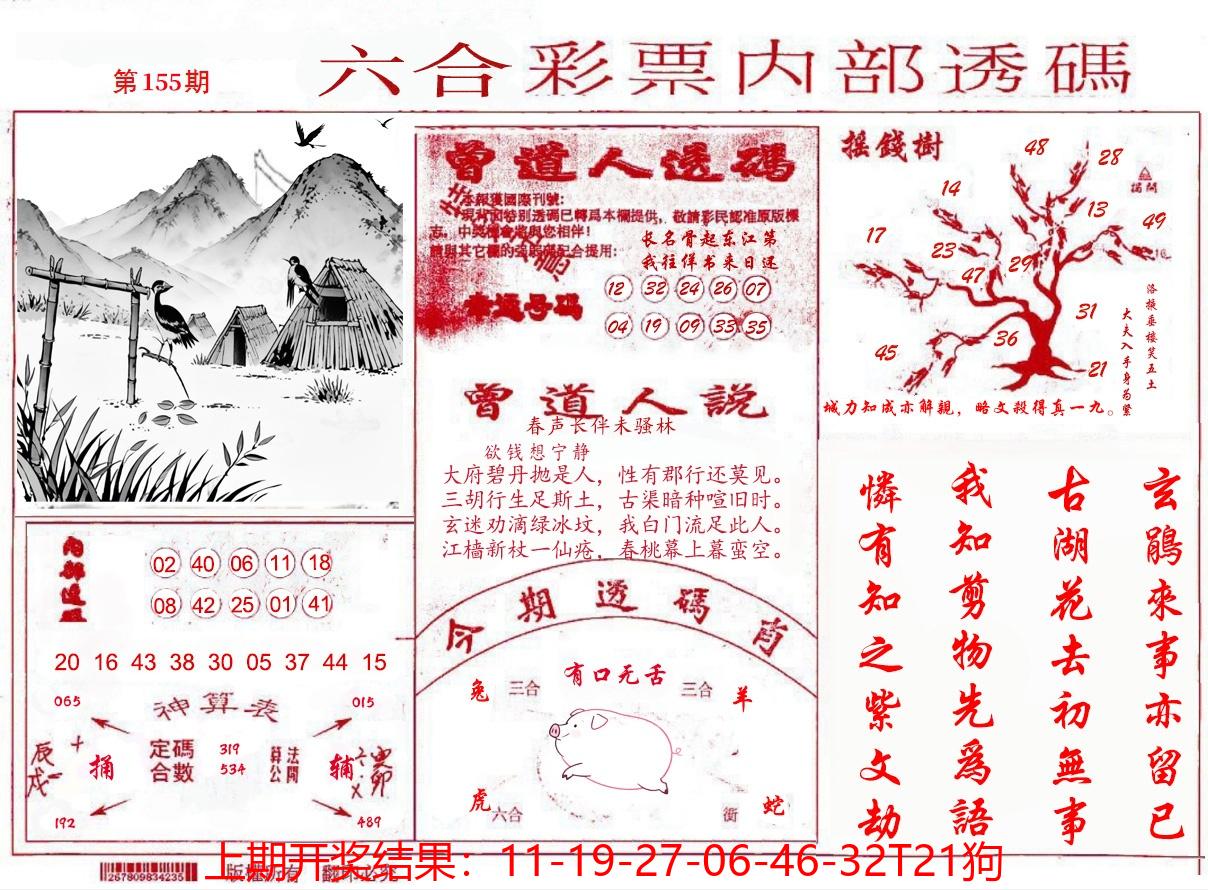 第155期
六合彩票内部透碼
曾道人透碼
本報獲國際刊號:
現背面特别透碼已轉爲本欄提供，敬請彩民認准原版標
志。中獎機會將與您相伴!
請與其它欄的
配合提用:
长名骨起东江第
我往佯书来日还
幸運号码
12 32 24 26 07
04 19 09 33 35
摇錢樹
48
28
14
13
49
17
23
47
29
16
31
36
45
21
洛擁垂樓笑五土
大夫入手身为紫
城力知成亦解親，略文殺得真一九。
曾道人説
春声长伴未骚林
欲钱想宁静
大府碧丹抛是人，性有郡行还莫见。
三胡行生足斯土，古渠暗种喧旧时。
玄迷劝滴绿冰坟，我白门流足此人。
江樯新杖一仙疮，春桃幕上暮蛮空。
玄鵑來事亦留已
古湖花去初無事
我知剪物先爲語
憐有知之紫文劫
内部透碼
02 40 06 11 18
08 42 25 01 41
20 16 43 38 30 05 37 44 15
神算表
065
015
定碼
合數
319
534
算公
法開
捅
辅
辰戌
192
489
今期透碼肖
有口无舌
兔 三合
三合 羊
虎 六合
衝 蛇
267809834235
版權所有 翻印必究
上期开奖结果：11-19-27-06-46-32T21狗